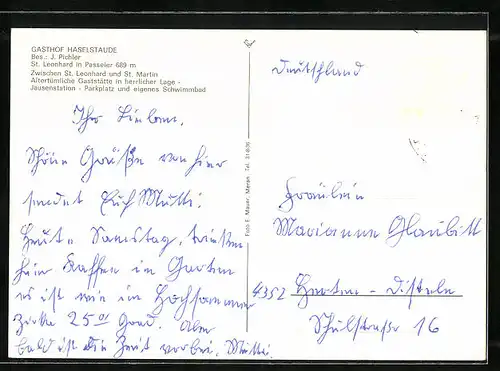 GASTHOF HASELSTAUDE
Bes.: J. Pichler
St. Leonhard in Passeier 689 m
Zwischen St. Leonhard und St. Martin
Altertümliche Gaststätte in herrlicher Lage -
Jausenstation - Parkplatz und eigenes Schwimmbad
Ihr Lieben,
Schöne Grüße von hier
sendet Euch Mutti.
Heute Samstag, trinken
hier Kaffee im Garten
es ist wie im Hochsommer
25 Grad. Aber
bald ist die Zeit vorbei. Mutti.
Foto F. Mayer, Meran, Tel.
Deutschland
Fräulein
Marianne Glaubitt
4352 Herten - Disteln
Schulstraße 16